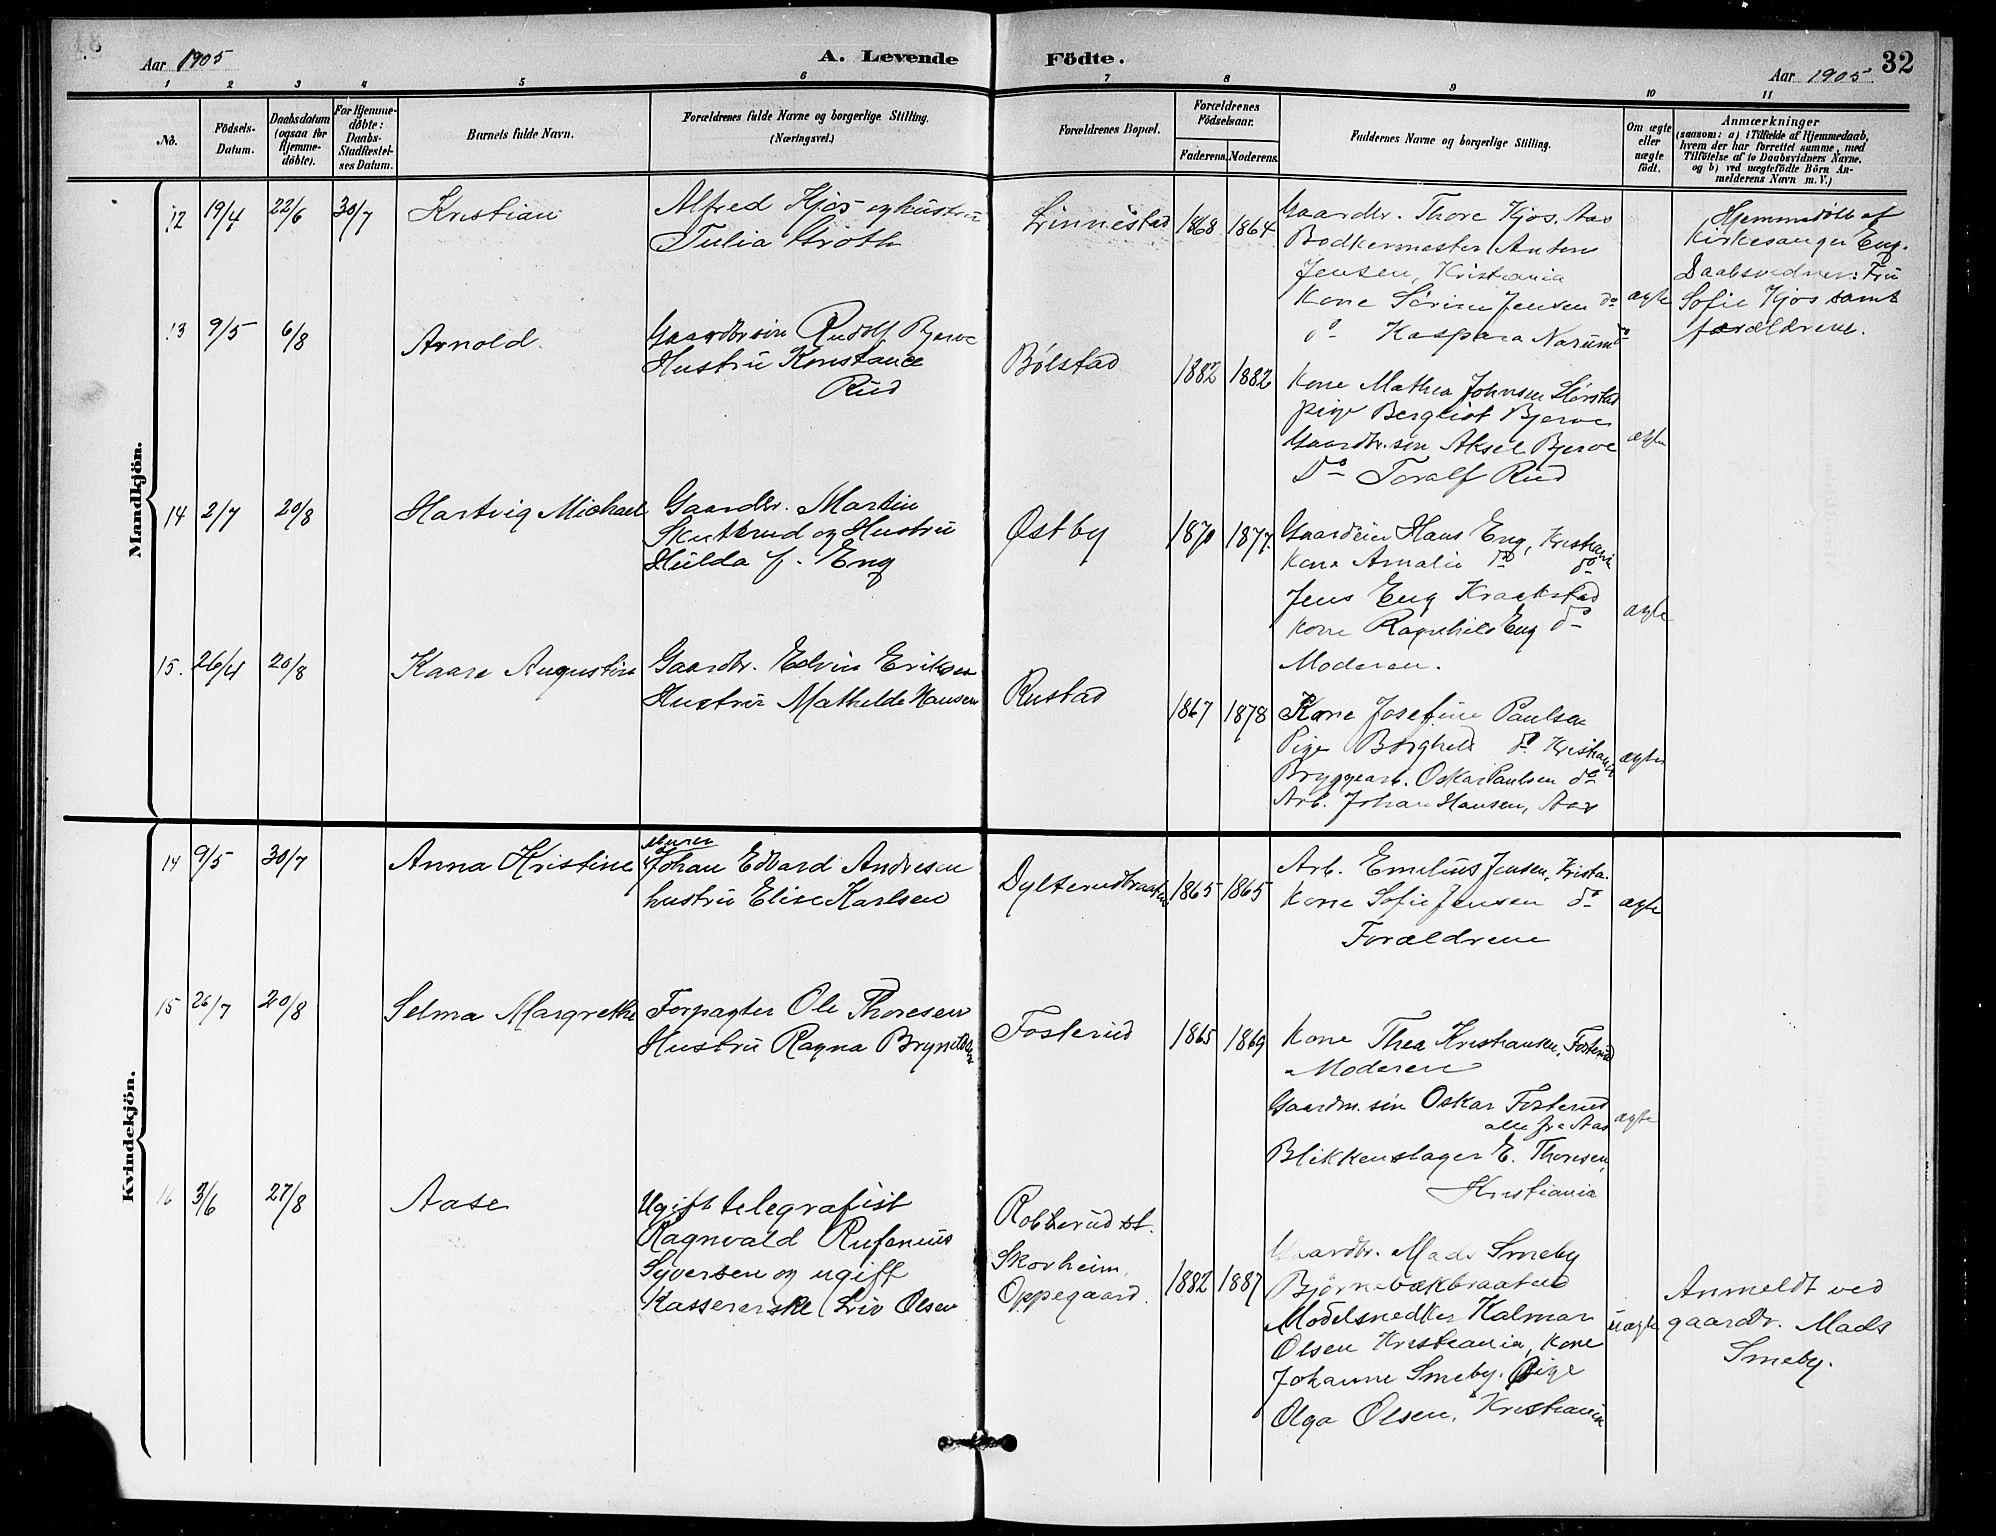 Aar 1905
A. Levende Födte.
Aar 1905
32
1 2 3 4 5 6 7 8 9 10 11
No.
Födsels-
Datum.
Daabsdatum
(ogsaa for
Hjemme-
döbte).
For Hjemme-
döbte:
Daabs-
Stadfæstel-
ses Datum.
Barnets fulde Navn.
Forældrenes fulde Navne og borgerlige Stilling.
(Næringsvei.)
Forældrenes Bopæl.
Forældrenes
Födselsaar.
Faderens.
Moderens.
Faddernes Navne og borgerlige Stilling.
Om ægte
eller
uægte
födt.
Anmærkninger
(saasom: a) i Tilfælde af Hjemmedaab,
hvem der har forrettet samme, med
Tilföielse af to Daabsvidners Navne.
og b) ved uægtefödte Börn An-
melderens Navn m. V.)
Mandkjön.
12 19/4 22/6 30/7
Kristian
Alfred Kjos og hustru
Julia Groth
Linnestad
1868 1864
Gaardbr. Thore Kjos, Aas
Bødkermester Anton
Jensen, Kristiania
Kone Sørine Jensen do
do Kaspara Narum do
ægte
Hjemmedøbt af
Kirkesanger Eng.
Daabsvidner: Fru
Sofie Kjos samt
forældrene.
13 9/5 6/8
Arnold.
Gaardbrsøn Rudolf Bjerve
Hustru Konstance
Rud
Bølstad
1882 1882
Kone Mathea Johnsen
pige Bergliot Bjerve
Gaardbr.søn Aksel Bjerve
Do Toralf Rud
ægte
14 2/7 20/8
Hartvig Michael
Gaardbr. Martin
Skuterud og Hustru
Hulda f. Eng
Østby
1870 1877.
Gaardeier Hans Eng, Kristiania
Kone Amalie do do
Jens Eng Kraakstad
Kone Ragnhild Eng do
Moderen.
ægte
15. 26/4 20/8
Kaare Augustin
Gaardbr. Edvin Eriksen
Hustru Mathilde Hansen
Rustad
1867 1878
Kone Josefine Paulsen
Pige Borghild do Kristiania
Bryggearb. Oskar Paulsen do
Arb. Johan Hansen, Aas
ægte
Kvindekjön.
14 9/5 30/7
Anna Kristine
Murer
Johan Edvard Andresen
hustru Elise Karlsen
Dylterudbraaten
1865 1865
Arb. Emelius Jensen, Krista.
Kone Sofie Jensen do
Forældrene
ægte
15 26/7 20/8
Selma Margrethe
Forpagter Ole Thoresen
Hustru Ragna Brynildsen
Fosterud
1865 1869
Kone Thea Kristiansen, Fosterud
Moderen
Gaardm.søn Oskar Fosterud
alle fra Aas
Blikkenslager E. Thoresen,
Kristiania
ægte
16 3/6 27/8
Aase
Ugift telegrafist
Ragnvald Rufenius
Syversen og ugift
Kassererske Liv Olsen
Rotterud st.
Skovheim,
Oppegaard.
1882 1887
Gaardbr. Mads Smeby
Bjørnebækbraaten
Modelsnedker Kalmar
Olsen Kristiania, Kone
Johanne Smeby. Pige
Olga Olsen, Kristiania
uægte
Anmeldt ved
gaardbr. Mads
Smeby.